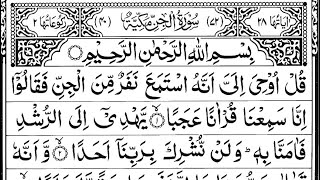 اٰیَاتُهَا ٢٨ (٧٢) سُوْرَةُ الْجِنِّ مَكِّیَّةٌ (٤٠) رُكُوْعَاتُهَا ٢
بِسْمِ اللّٰهِ الرَّحْمٰنِ الرَّحِیْمِ
قُلْ اُوْحِیَ اِلَیَّ اَنَّهُ اسْتَمَعَ نَفَرٌ مِّنَ الْجِنِّ فَقَالُوْۤا
اِنَّا سَمِعْنَا قُرْاٰنًا عَجَبًا ۙ١ یَّهْدِیْۤ اِلَی الرُّشْدِ
فَاٰمَنَّا بِهٖ ؕ وَلَنْ نُّشْرِكَ بِرَبِّنَاۤ اَحَدًا ۙ٢ وَّاَنَّهٗ